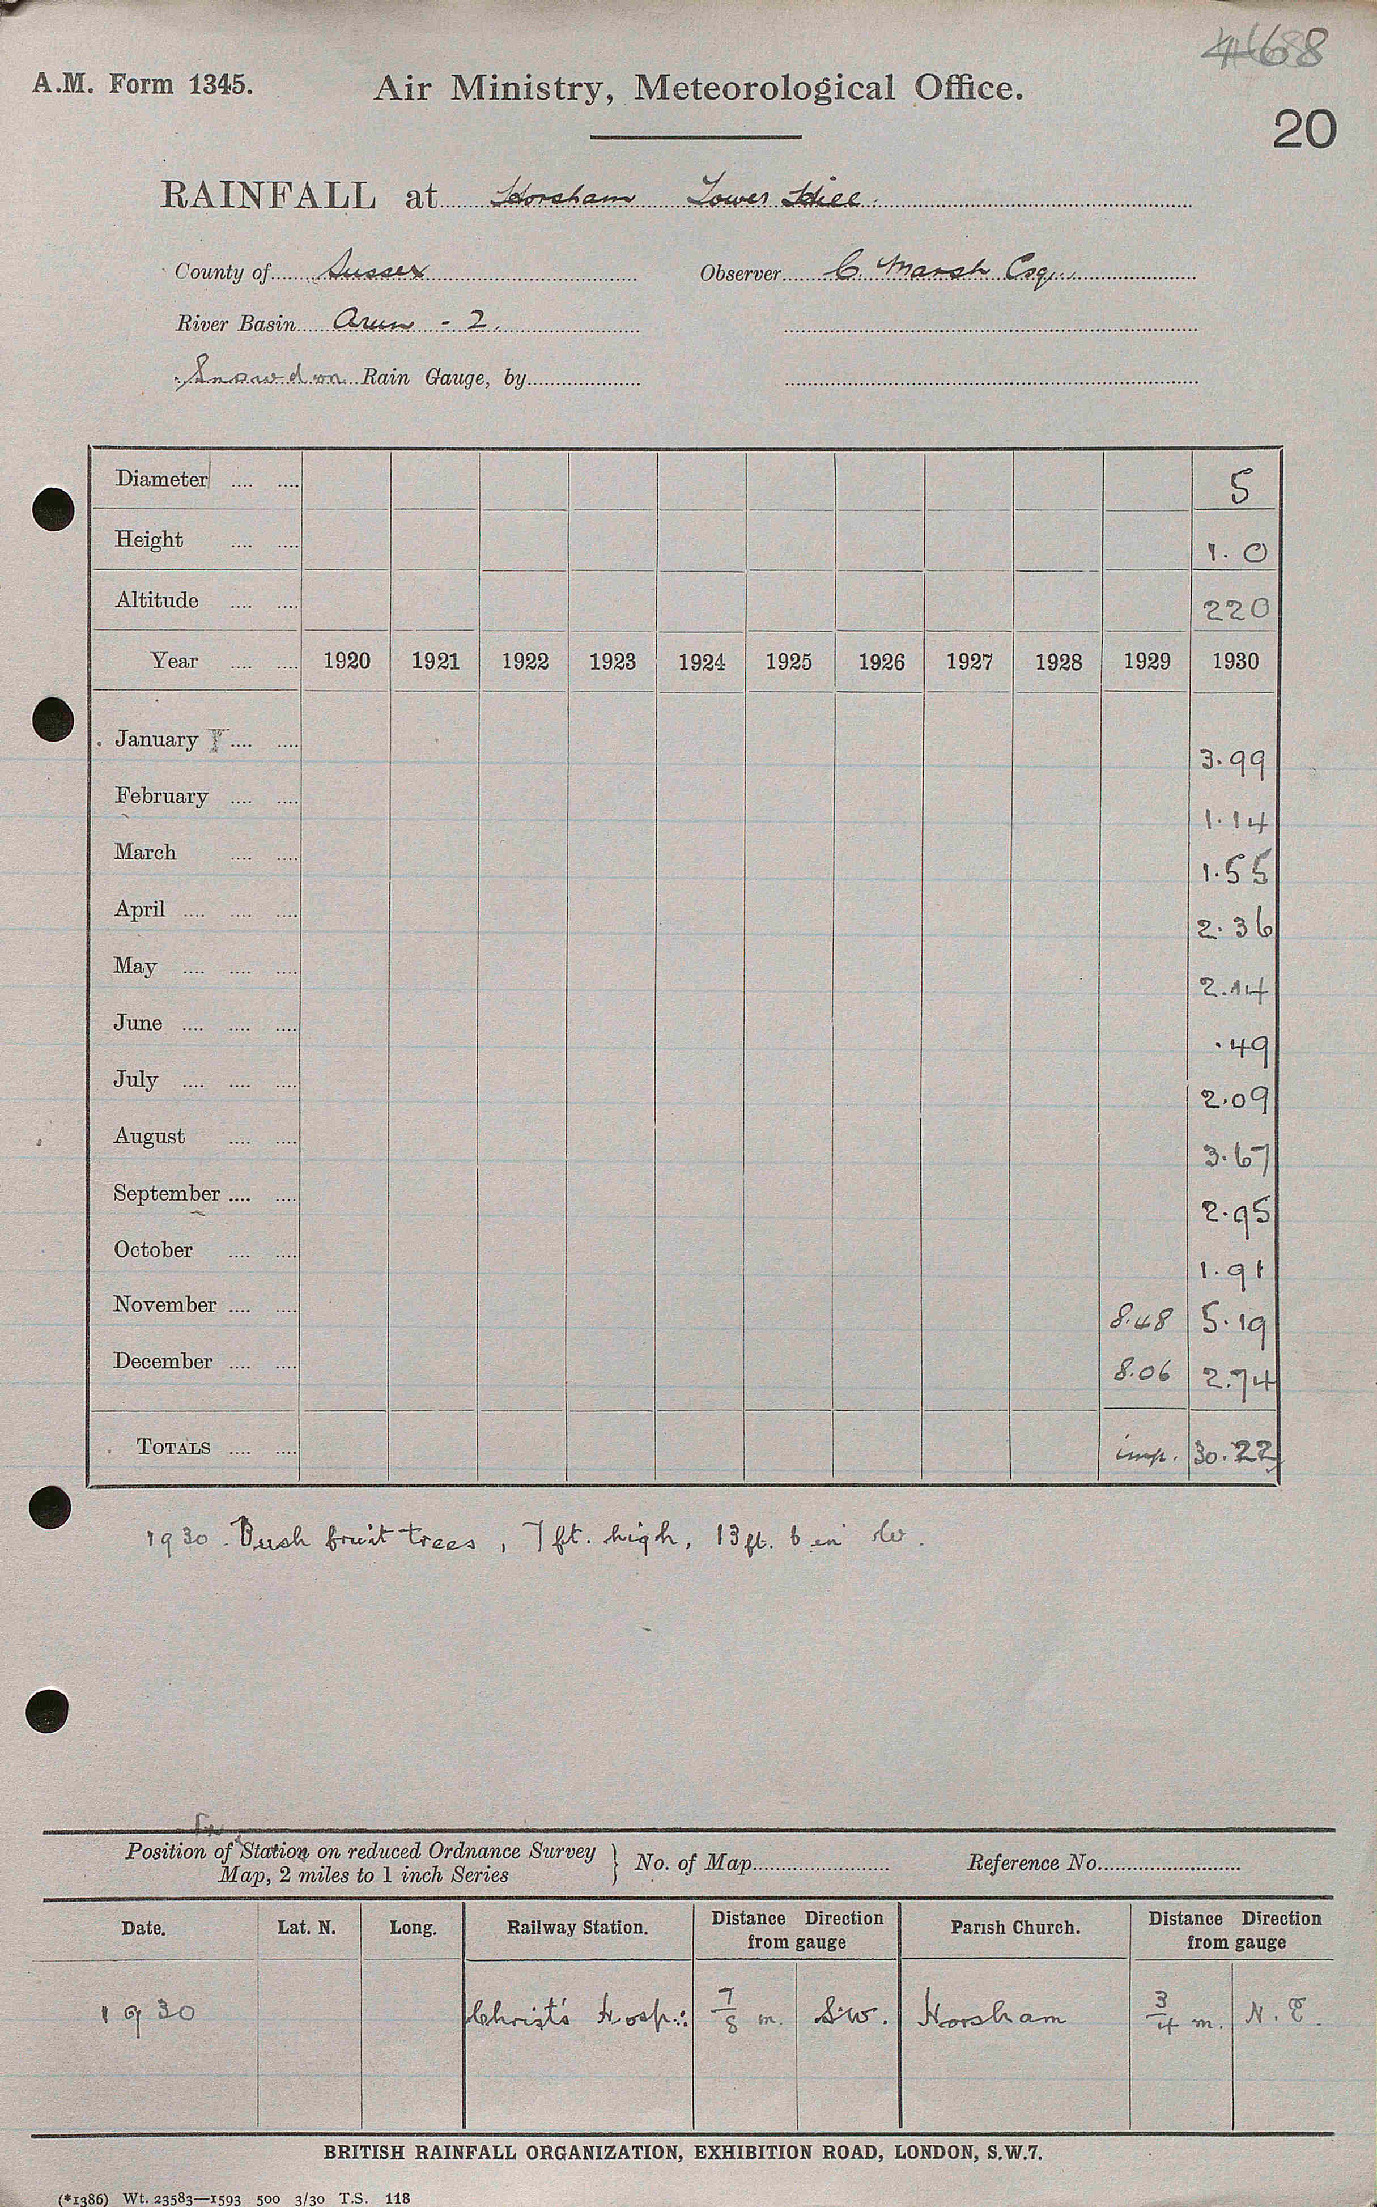 4688
A.M. Form 1345. Air Ministry, Meteorological Office.
20
RAINFALL at Horsham Tower Hill.
County of Sussex Observer C. Marsh Esq.
River Basin Arun - 2.
Snowdon Rain Gauge, by
Diameter .... .... 5
Height .... .... 1.0
Altitude .... .... 220
Year .... .... 1920 1921 1922 1923 1924 1925 1926 1927 1928 1929 1930
January .... .... 3.99
February .... .... 1.14
March .... .... 1.55
April .... .... .... 2.36
May .... .... .... 2.14
June .... .... .... .49
July .... .... .... 2.09
August .... .... 3.67
September .... .... 2.95
October .... .... 1.91
November .... .... 8.48 5.19
December .... .... 8.06 2.74
TOTALS .... .... imp. 30.22
1930. Bush fruit trees, 7 ft. high, 13 ft. 6 in W.
Position of Station on reduced Ordnance Survey
Map, 2 miles to 1 inch Series } No. of Map Reference No.
Date. Lat. N. Long. Railway Station. Distance Direction from gauge Parish Church. Distance Direction from gauge
1930 Christ's Hosp: 7/8 m. S.W. Horsham 3/4 m. N.E.
BRITISH RAINFALL ORGANIZATION, EXHIBITION ROAD, LONDON, S.W.7.
(*1386) Wt. 23583—1593 500 3/30 T.S. 118